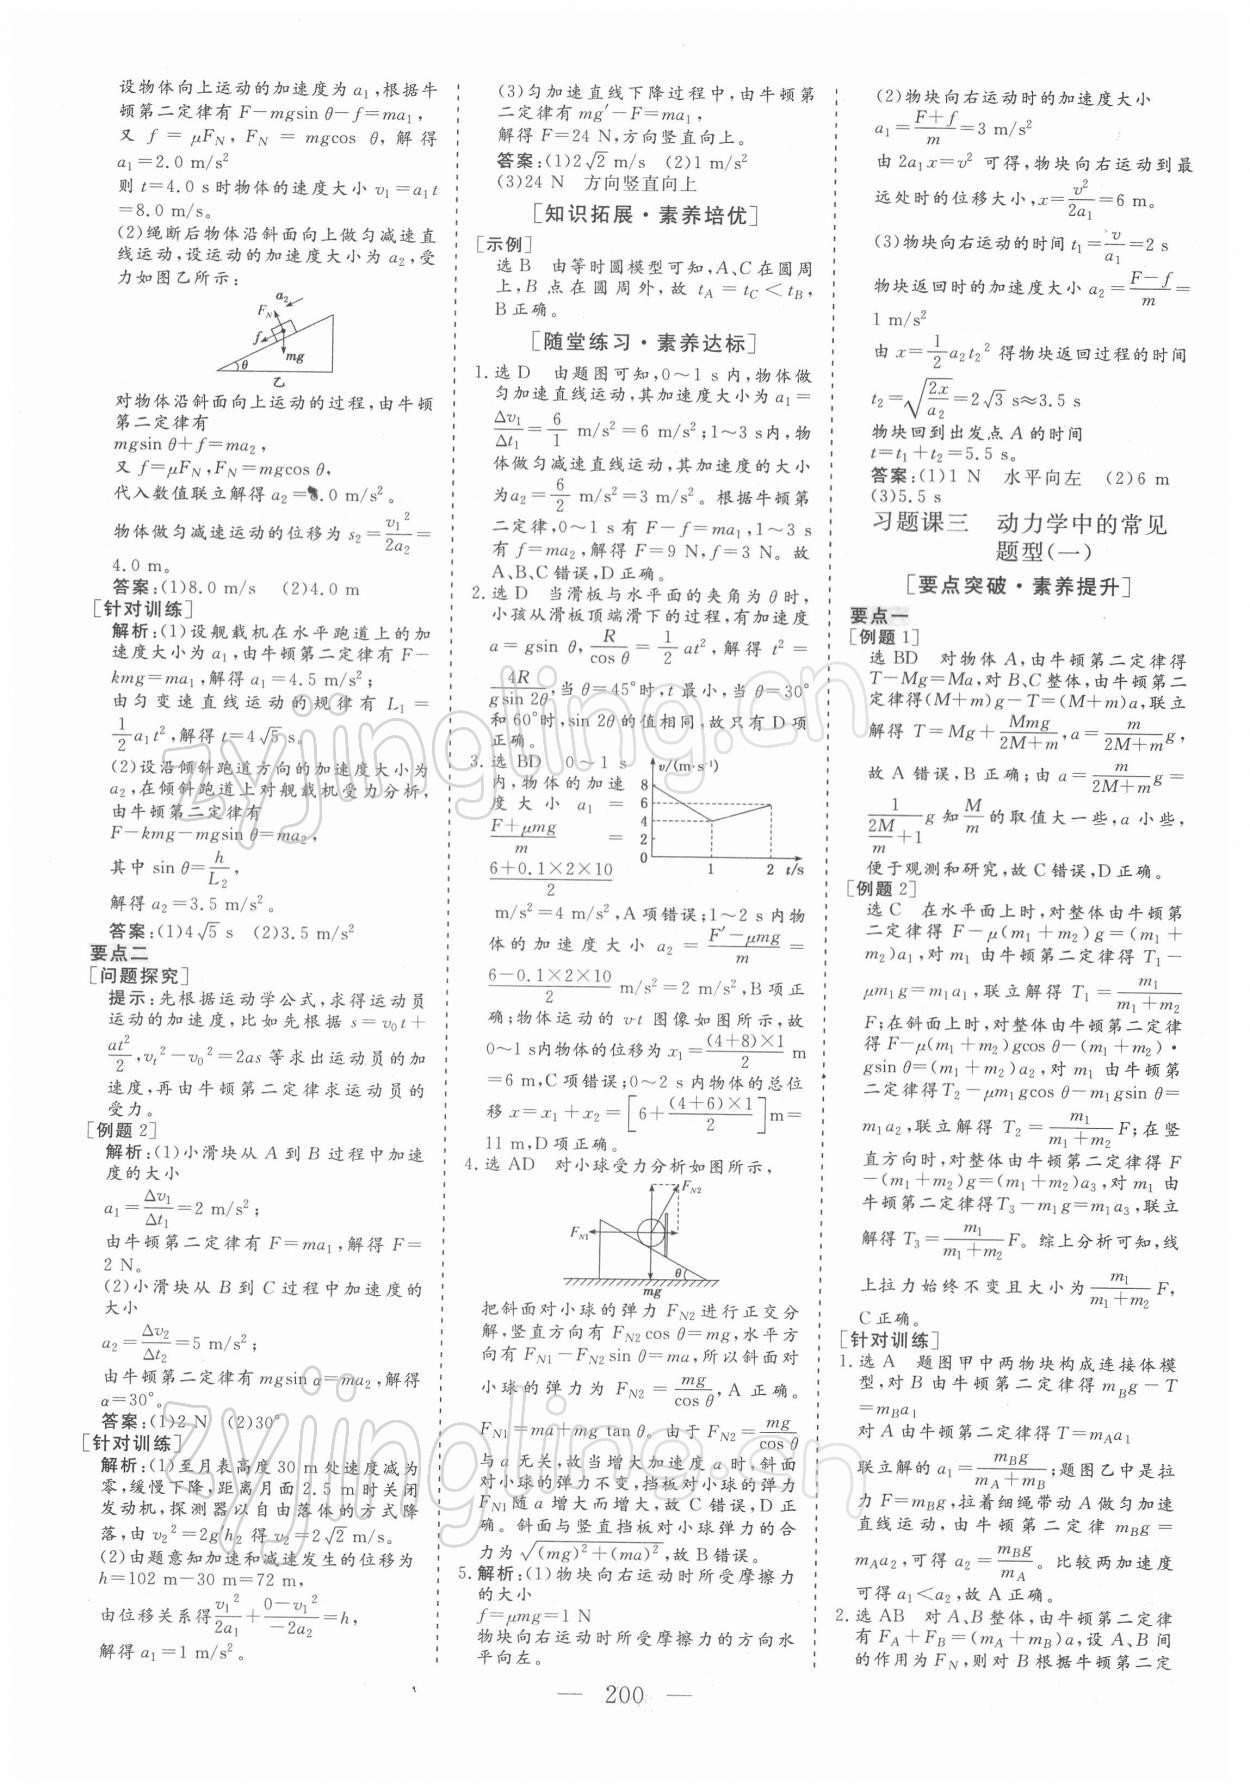 设物体向上运动的加速度为 a₁,根据牛
顿第二定律有 F－mgsin θ－f＝ma₁,
又 f ＝ μF_N, F_N ＝ mgcos θ, 解 得
a₁＝2.0 m/s²
则 t＝4.0 s 时物体的速度大小 v₁＝a₁t
＝8.0 m/s。
(2)绳断后物体沿斜面向上做匀减速直
线运动,设运动的加速度大小为 a₂,受
力如图乙所示:
a₂
F_N
f
mg
θ
乙
对物体沿斜面向上运动的过程,由牛顿
第二定律有
mgsin θ＋f＝ma₂,
又 f＝μF_N,F_N＝mgcos θ,
代入数值联立解得 a₂＝8.0 m/s²。
物体做匀减速运动的位移为 s₂＝v₁²/2a₂＝
4.0 m。
答案:(1)8.0 m/s (2)4.0 m
[针对训练]
解析:(1)设舰载机在水平跑道上的加
速度大小为 a₁,由牛顿第二定律有 F－
kmg＝ma₁,解得 a₁＝4.5 m/s²;
由匀变速直线运动的规律有 L₁＝
1/2 a₁t²,解得 t＝4√5 s。
(2)设沿倾斜跑道方向的加速度大小为
a₂,在倾斜跑道上对舰载机受力分析,
由牛顿第二定律有
F－kmg－mgsin θ＝ma₂,
其中 sin θ＝h/L₂,
解得 a₂＝3.5 m/s²。
答案:(1)4√5 s (2)3.5 m/s²
要点二
[问题探究]
提示:先根据运动学公式,求得运动员
运动的加速度,比如先根据 s＝v₀t＋
at²/2,v_t²－v₀²＝2as 等求出运动员的加
速度,再由牛顿第二定律求运动员的
受力。
[例题 2]
解析:(1)小滑块从 A 到 B 过程中加速
度的大小
a₁＝Δv₁/Δt₁＝2 m/s²;
由牛顿第二定律有 F＝ma₁,解得 F＝
2 N。
(2)小滑块从 B 到 C 过程中加速度的
大小
a₂＝Δv₂/Δt₂＝5 m/s²;
由牛顿第二定律有 mgsin α＝ma₂,解得
α＝30°。
答案:(1)2 N (2)30°
[针对训练]
解析:(1)至月表高度 30 m 处速度减为
零,缓慢下降,距离月面 2.5 m 时关闭
发动机,探测器以自由落体的方式降
落,由 v₂²＝2gh₂ 得 v₂＝2√2 m/s。
(2)由题意知加速和减速发生的位移为
h＝102 m－30 m＝72 m,
由位移关系得v₁²/2a₁＋(0－v₁²)/(－2a₂)＝h,
解得 a₁＝1 m/s²。
(3)匀加速直线下降过程中,由牛顿第
二定律有 mg′－F＝ma₁,
解得 F＝24 N,方向竖直向上。
答案:(1)2√2 m/s (2)1 m/s²
(3)24 N 方向竖直向上
[知识拓展·素养培优]
[示例]
选 B 由等时圆模型可知,A、C 在圆周
上,B 点在圆周外,故 t_A＝t_C＜t_B,
B 正确。
[随堂练习·素养达标]
1.选 D 由题图可知,0～1 s 内,物体做
匀加速直线运动,其加速度大小为 a₁＝
Δv₁/Δt₁＝6/1 m/s²＝6 m/s²;1～3 s内,物
体做匀减速直线运动,其加速度的大小
为a₂＝6/2 m/s²＝3 m/s²。根据牛顿第
二定律,0～1 s 有 F－f＝ma₁,1～3 s
有 f＝ma₂,解得 F＝9 N,f＝3 N。故
A、B、C 错误,D 正确。
2.选 D 当滑板与水平面的夹角为 θ 时,
小孩从滑板顶端滑下的过程,有加速度
a＝gsin θ,R/cos θ＝1/2 at²,解得 t²＝
4R/gsin 2θ,当 θ＝45°时,t 最小,当 θ＝30°
和 60°时,sin 2θ的值相同,故只有 D 项
正确。
3.选 BD 0～1 s
内,物体的加速
度大小 a₁＝
(F＋μmg)/m ＝
(6＋0.1×2×10)/2
v/(m·s⁻¹)
8
6
4
2
0
1 2 t/s
m/s²＝4 m/s²,A项错误;1～2 s内物
体的加速度大小 a₂＝(F′－μmg)/m＝
(6－0.1×2×10)/2 m/s²＝2 m/s²,B 项正
确;物体运动的 v-t 图像如图所示,故
0～1 s内物体的位移为 x₁＝(4＋8)×1/2 m
＝6 m,C项错误;0～2 s内物体的总位
移 x＝x₁＋x₂＝[6＋(4＋6)×1/2]m＝
11 m,D 项正确。
4.选 AD 对小球受力分析如图所示,
F_N2
F_N1
θ
mg
把斜面对小球的弹力 F_N2 进行正交分
解,竖直方向有 F_N2cos θ＝mg,水平方
向有 F_N1－F_N2sin θ＝ma,所以斜面对
小球的弹力为 F_N2＝mg/cos θ,A 正确。
F_N1＝ma＋mg tan θ。由于 F_N2＝mg/cos θ
与 a 无关,故当增大加速度 a 时,斜面
对小球的弹力不变,挡板对小球的弹力
F_N1随 a 增大而增大,故 C 错误,D 正
确。斜面与竖直挡板对小球弹力的合
力为√((mg)²＋(ma)²),故 B错误。
5.解析:(1)物块向右运动时所受摩擦力
的大小
f＝μmg＝1 N
物块向右运动时所受摩擦力的方向水
平向左。
(2)物块向右运动时的加速度大小
a₁＝(F＋f)/m＝3 m/s²
由 2a₁x＝v² 可得,物块向右运动到最
远处时的位移大小,x＝v²/2a₁＝6 m。
(3)物块向右运动的时间 t₁＝v/a₁＝2 s
物块返回时的加速度大小 a₂＝(F－f)/m＝
1 m/s²
由 x＝1/2 a₂t₂² 得物块返回过程的时间
t₂＝√(2x/a₂)＝2√3 s≈3.5 s
物块回到出发点 A 的时间
t＝t₁＋t₂＝5.5 s。
答案:(1)1 N 水平向左 (2)6 m
(3)5.5 s
习题课三 动力学中的常见
题型(一)
[要点突破·素养提升]
要点一
[例题 1]
选 BD 对物体 A,由牛顿第二定律得
T－Mg＝Ma,对 B、C 整体,由牛顿第二
定律得(M＋m)g－T＝(M＋m)a,联立
解得 T＝Mg＋Mmg/(2M＋m),a＝m/(2M＋m) g,
故 A 错误,B 正确;由 a＝m/(2M＋m) g＝
1/(2M/m＋1) g 知 M/m 的取值大一些,a 小些,
便于观测和研究,故 C 错误,D 正确。
[例题 2]
选 C 在水平面上时,对整体由牛顿第
二定律得 F－μ(m₁＋m₂)g＝(m₁＋
m₂)a₁,对 m₁ 由牛顿第二定律得 T₁－
μm₁g＝m₁a₁,联立解得 T₁＝m₁/(m₁＋m₂)
F;在斜面上时,对整体由牛顿第二定律
得 F－μ(m₁＋m₂)gcos θ－(m₁＋m₂)·
gsin θ＝(m₁＋m₂)a₂,对 m₁ 由牛顿第
二定律得T₂－μm₁gcos θ－m₁gsin θ＝
m₁a₂,联立解得 T₂＝m₁/(m₁＋m₂) F;在竖
直方向时,对整体由牛顿第二定律得 F
－(m₁＋m₂)g＝(m₁＋m₂)a₃,对 m₁ 由
牛顿第二定律得T₃－m₁g＝m₁a₃,联立
解得 T₃＝m₁/(m₁＋m₂) F。综上分析可知,线
上拉力始终不变且大小为 m₁/(m₁＋m₂) F,
C 正确。
[针对训练]
1.选 A 题图甲中两物块构成连接体模
型,对 B 由牛顿第二定律得 m_Bg－T
＝m_Ba₁
对 A 由牛顿第二定律得 T＝m_Aa₁
联立解的 a₁＝m_Bg/(m_A＋m_B);题图乙中是拉
力 F＝m_Bg,拉着细绳带动 A 做匀加速
直线运动,由牛顿第二定律 m_Bg＝
m_Aa₂,可得 a₂＝m_Bg/m_A。比较两加速度
可得 a₁＜a₂,故 A 正确。
2.选 AB 对 A、B 整体,由牛顿第二定律
有 F_A＋F_B＝(m_A＋m_B)a,设 A、B 间
的作用为 F_N,则对 B 根据牛顿第二定
— 200 —
zyjingling.cn
zyjingling.cn